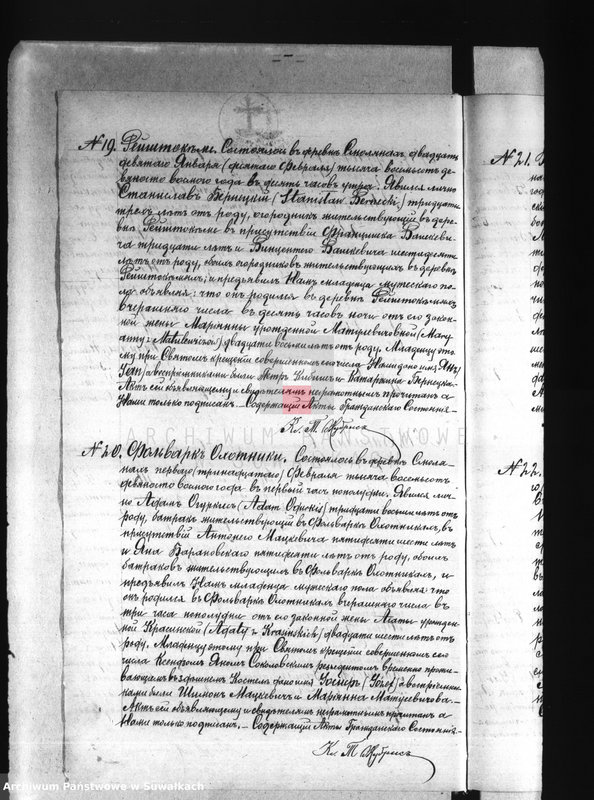 N 19. Рейштокъме. Состоялось въ деревнѣ Смолянахъ двадцать
девятаго Января (десятаго Февраля) тысяча восемьсотъ де-
вяносто восмого года въ десять часовъ утра: Явился лично
Станиславъ Берецкій (Stanisław Berecki) тридцати
трехъ лѣтъ отъ роду, огородникъ жительствующій въ дерев-
нѣ Рейштокъме въ присутствіи Францишка Вашкеви-
ча тридцати лѣтъ и Винцентего Вашкевича шестидесяти
лѣтъ отъ роду, обоихъ огородниковъ жительствующихъ въ деревнѣ
Рейштокъмахъ; и предъявилъ Намъ младенца мужескаго по-
ла объявляя: что онъ родился въ деревнѣ Рейштокъмахъ
вчерашняго числа въ десять часовъ ночи отъ его закон-
ной жены Маріянны урожденной Матулевичовной (Mary-
anny z Matulewiczów) двадцати восьми лѣтъ отъ роду. Младенцу это-
му при Святомъ крещеніи совершенномъ сего числа Нами дано имя Янъ/
Jan/ а воспріемниками были Петръ и Катаржина Берецка.
Актъ сей объявляющему и свидѣтелямъ неграмотнымъ прочитанъ а
Нами только подписанъ. Содержащій Акты Гражданскаго Состоянія.
Кс. Т.
ARCHIWUM PAŃSTWOWE
N 20. Фольваркъ Охотники. Состоялось въ деревнѣ Смоля-
нахъ перваго (тринадцатаго) Февраля тысяча восемьсотъ
девяносто восмого года въ первый часъ пополудни. Явился лич-
но Адамъ (Adam) тридцати восьми лѣтъ отъ
роду, батракъ жительствующій въ Фольваркѣ Охотникахъ, въ
присутствіи Антонего Мацкевича пятидесяти шести лѣтъ
и Яна Барановскаго пятидесяти лѣтъ отъ роду, обоихъ
батраковъ жительствующихъ въ Фольваркѣ Охотникахъ, и
предъявилъ Намъ младенца мужескаго пола объявляя: что
онъ родился въ Фольваркѣ Охотникахъ вчерашняго числа въ
три часа пополудни отъ его законной жены Агаты урожден-
ной Красинской (Agaty z Krasińskich) двадцати шести лѣтъ отъ
роду. Младенцу этому при Святомъ крещеніи совершенномъ сего
числа Ксендзомъ Яномъ Соколовскимъ резидентомъ временно прожи-
вающимъ въ здѣшнемъ Костелѣ дано имя Іосифъ (Józef) а воспріемни-
ками были Шимонъ Мацкевичъ и Маріянна Матулевичова.
Актъ сей объявляющему и свидѣтелямъ неграмотнымъ прочитанъ а
Нами только подписанъ. Содержащій Акты Гражданскаго Состоянія.
Кс. Т.
N 21.
N 22.
Archiwum Państwowe w Suwałkach